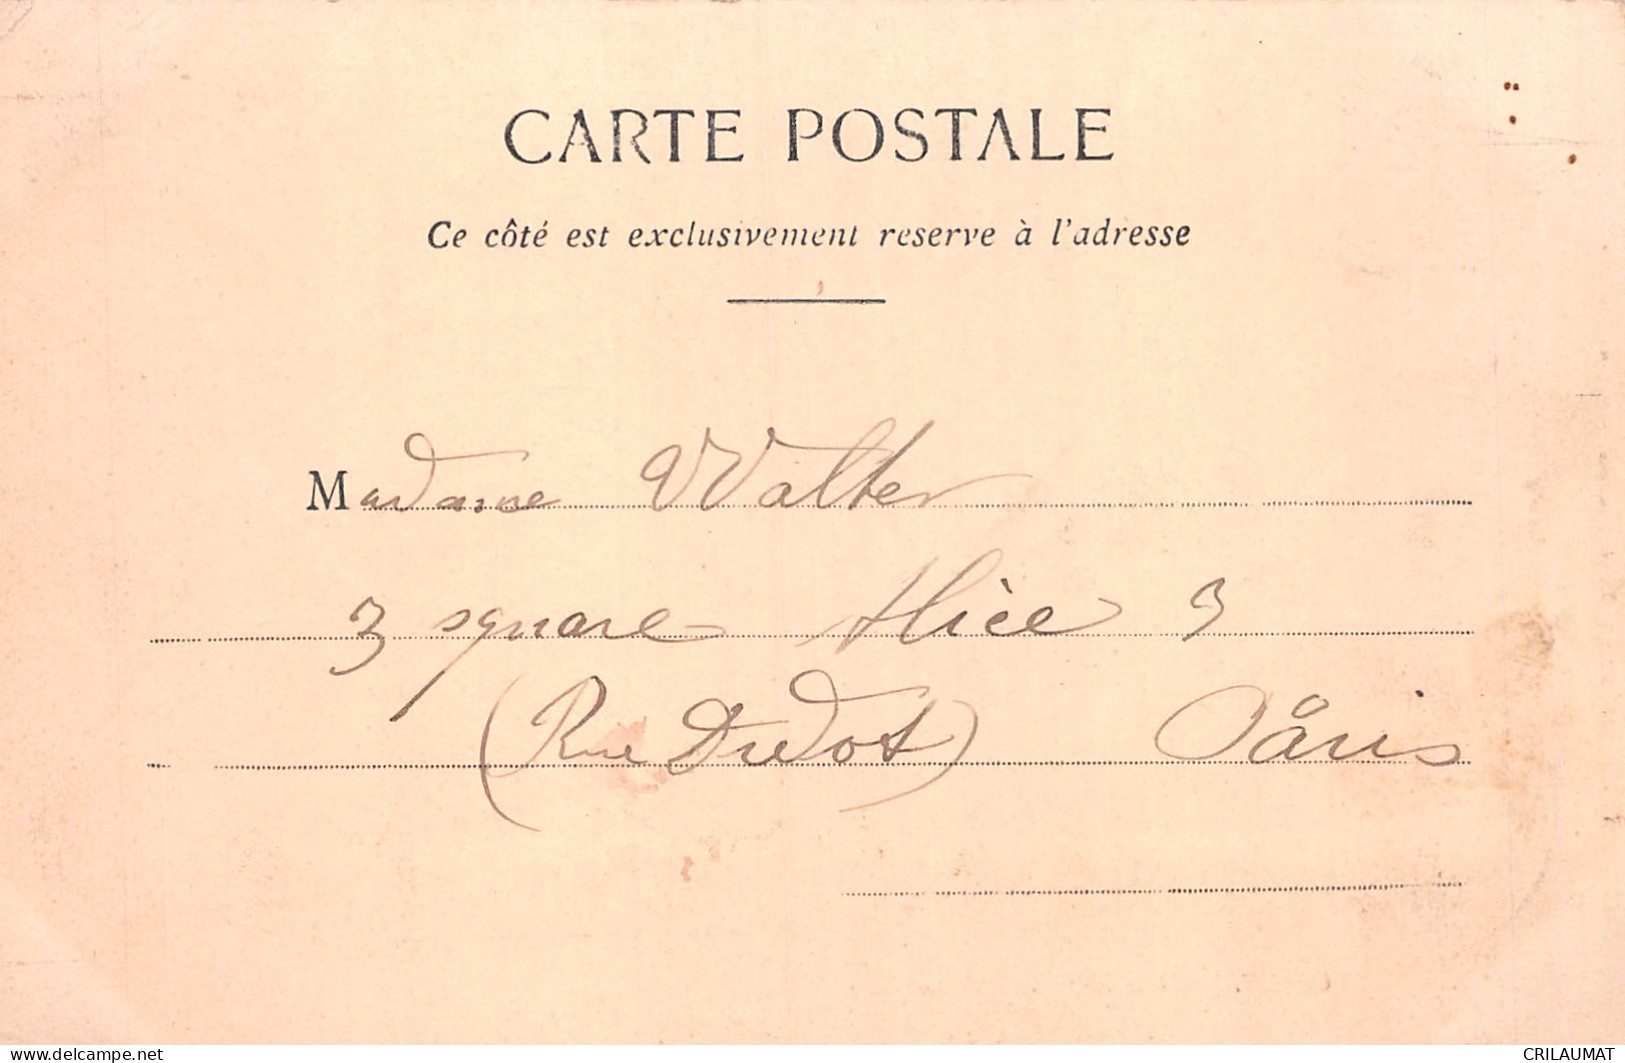 CARTE POSTALE
Ce côté est exclusivement reserve à l'adresse
Madame Walter
3 square Alice 3
(Rue Didot) Paris
delcampe.net
CRILAUMAT